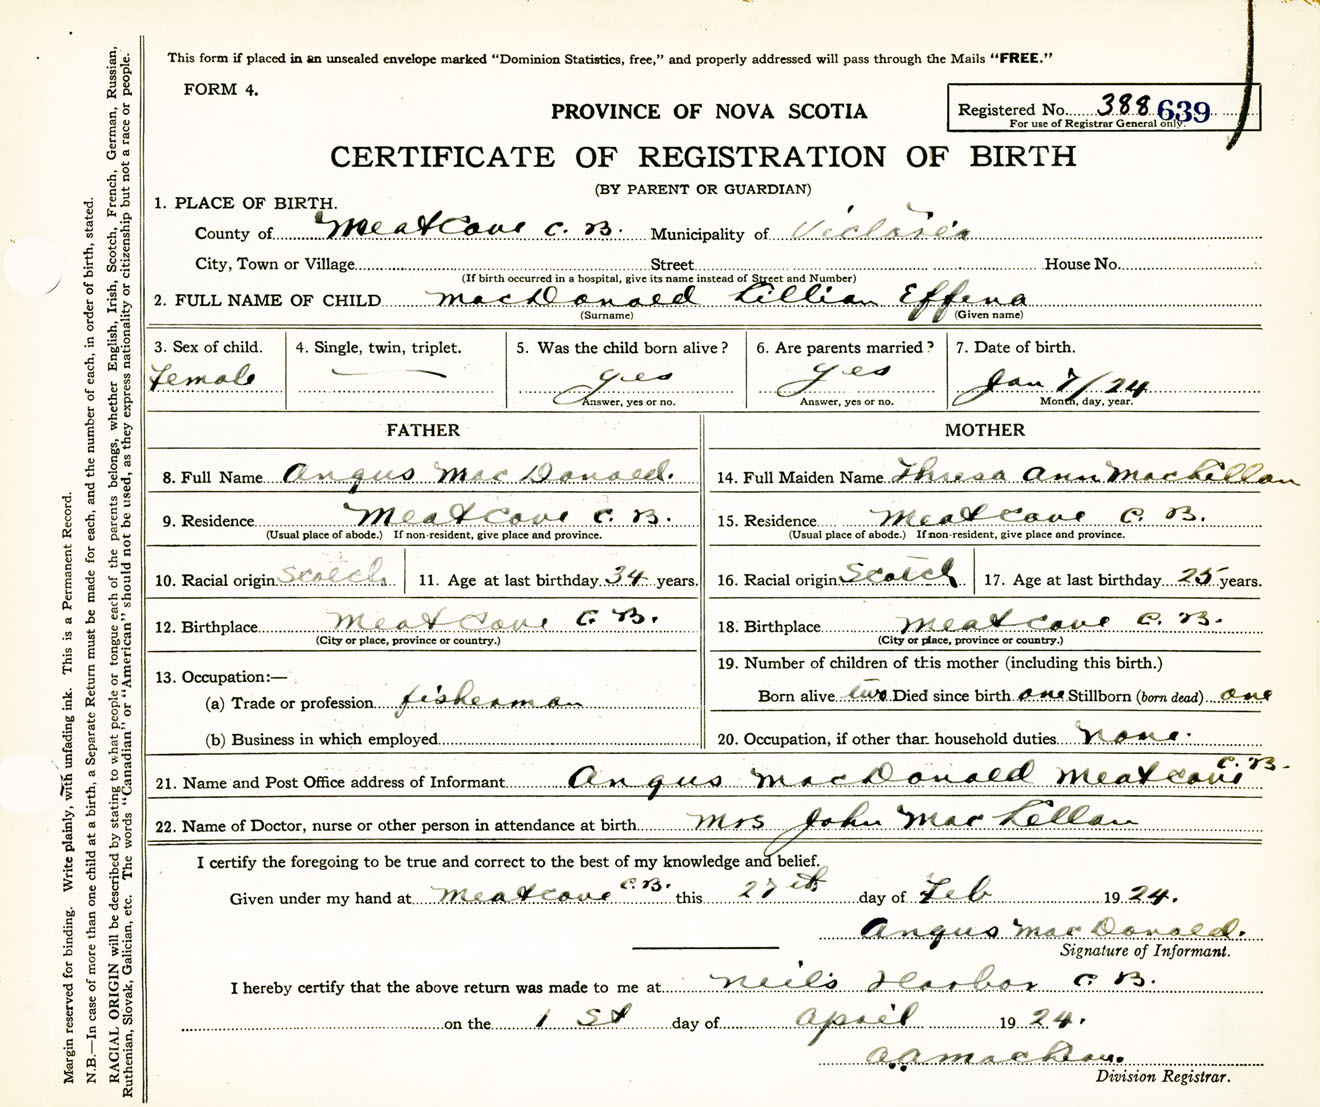 This form if placed in an unsealed envelope marked “Dominion Statistics, free,” and properly addressed will pass through the Mails “FREE.”
FORM 4.
PROVINCE OF NOVA SCOTIA
Registered No. 388 639
For use of Registrar General only.
CERTIFICATE OF REGISTRATION OF BIRTH
(BY PARENT OR GUARDIAN)
1. PLACE OF BIRTH.
County of Meatcove C. B. Municipality of Victoria
City, Town or Village Street House No.
(If birth occurred in a hospital, give its name instead of Street and Number)
2. FULL NAME OF CHILD MacDonald Lillian Effena
(Surname) (Given name)
3. Sex of child. 4. Single, twin, triplet. 5. Was the child born alive? 6. Are parents married? 7. Date of birth.
female yes yes Jan 7/24
Answer, yes or no. Answer, yes or no. Month, day, year.
FATHER MOTHER
8. Full Name Angus MacDonald. 14. Full Maiden Name Thresa Ann MacLellan
9. Residence Meatcove C. B. 15. Residence Meatcove C. B.
(Usual place of abode.) If non-resident, give place and province. (Usual place of abode.) If non-resident, give place and province.
10. Racial origin Scotch 11. Age at last birthday 34 years. 16. Racial origin Scotch 17. Age at last birthday 25 years.
12. Birthplace Meatcove C. B. 18. Birthplace Meatcove C. B.
(City or place, province or country.) (City or place, province or country.)
13. Occupation:— 19. Number of children of this mother (including this birth.)
(a) Trade or profession fisherman Born alive two Died since birth one Stillborn (born dead) one
(b) Business in which employed 20. Occupation, if other than household duties none.
21. Name and Post Office address of Informant Angus MacDonald Meatcove C. B.
22. Name of Doctor, nurse or other person in attendance at birth Mrs John MacLellan
I certify the foregoing to be true and correct to the best of my knowledge and belief.
Given under my hand at Meatcove C. B. this 27th day of Feb 1924.
Angus MacDonald.
Signature of Informant.
I hereby certify that the above return was made to me at Neil's Harbor C. B.
on the 1st day of April 1924.
A. A.
Division Registrar.
Margin reserved for binding. Write plainly, with unfading ink. This is a Permanent Record.
N.B.—In case of more than one child at a birth, a Separate Return must be made for each, and the number of each, in order of birth, stated.
RACIAL ORIGIN will be described by stating to what people or tongue each of the parents belongs, whether English, Irish, Scotch, French, German, Russian,
Ruthenian, Slovak, Galician, etc. The words “Canadian” or “American” should not be used, as they express nationality or citizenship but not a race or people.